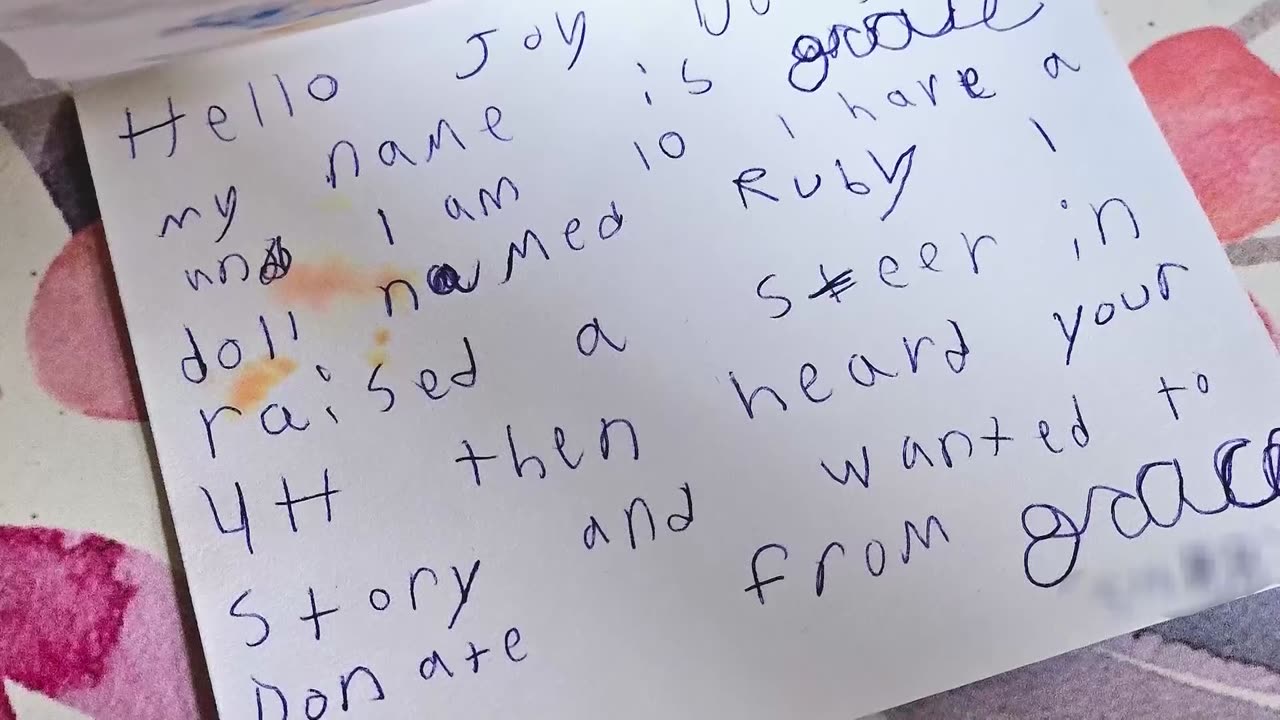 Hello Joy
my name is grace
and I am 10 I have a
doll named Ruby I
raised a steer in
4H then heard your
story and wanted to
Donate from grace